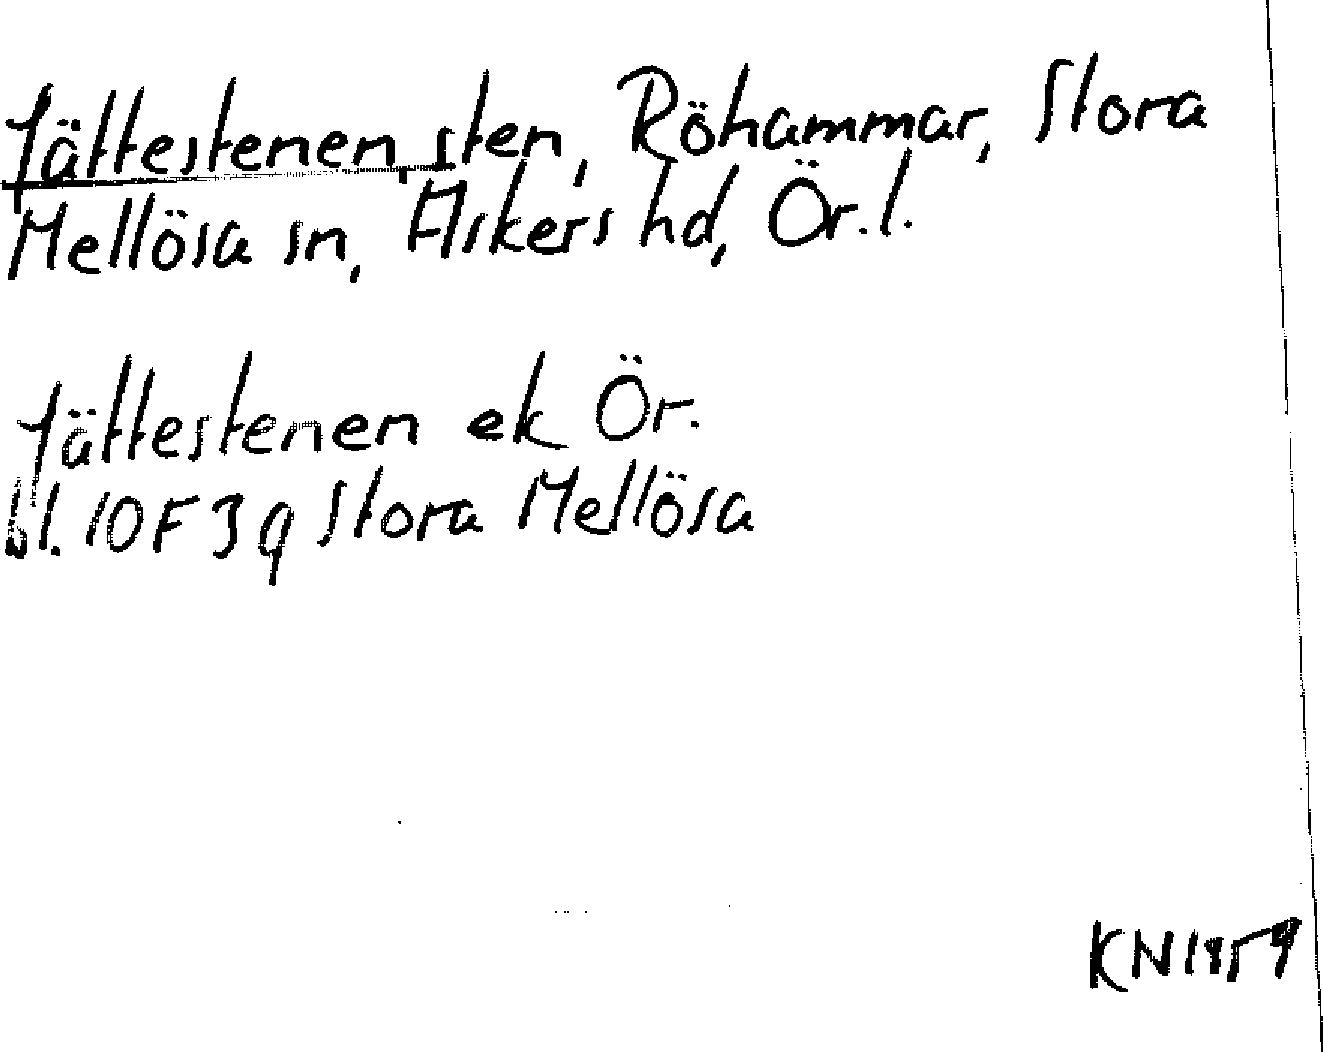 Jättestenen, sten, Röhammar, Stora
Mellösa sn, Askers hd, Ör.l.
Jättestenen ek Ör.
bl. 10F3q Stora Mellösa
KN1959